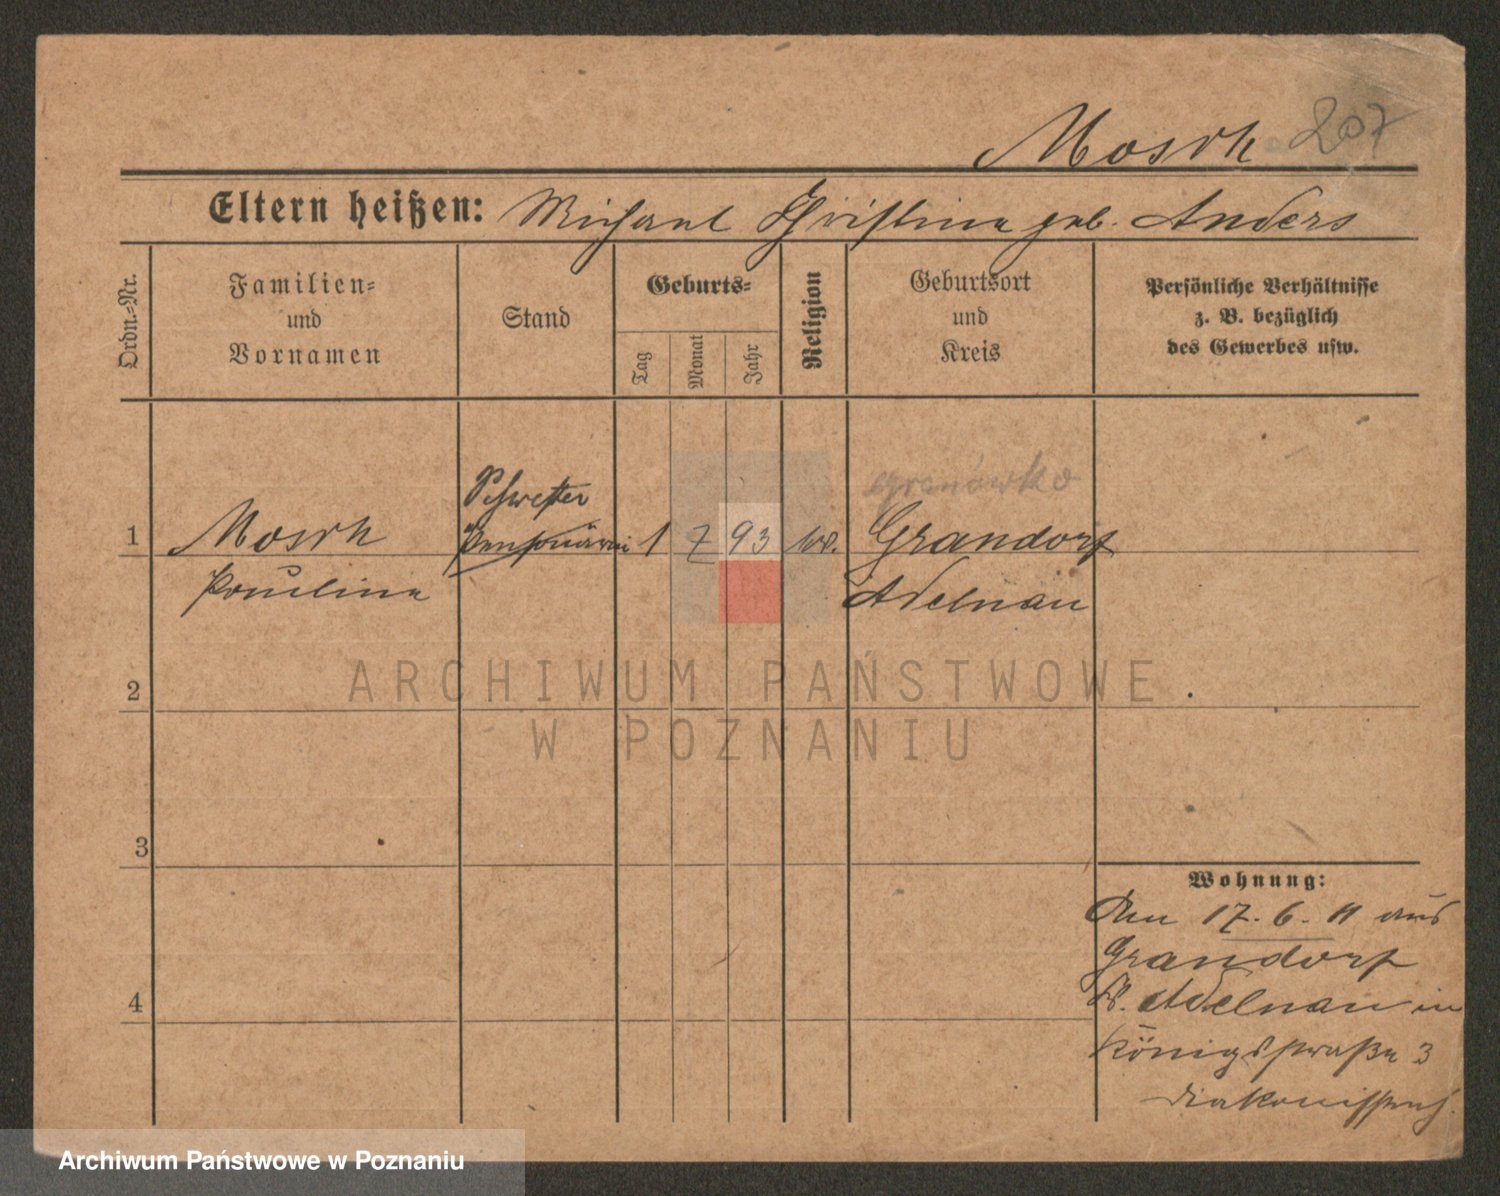 Mosch 207
Eltern heißen: Michael Christine geb. Anders
Ordn.-Nr.
Familien-
und
Vornamen
Stand
Geburts-
Tag
Monat
Jahr
Religion
Geburtsort
und
Kreis
Persönliche Verhältnisse
z. B. bezüglich
des Gewerbes usw.
Schwester
Granówko
1 Mosch 1 7 93 ev. Grandorf
Pauline Adelnau
2
3
4
ARCHIWUM PAŃSTWOWE
W POZNANIU
Wohnung:
Am 17. 6. 11 aus
Grandorf
Kr. Adelnau in
Königstraße 3
Diakonissenh.
Archiwum Państwowe w Poznaniu